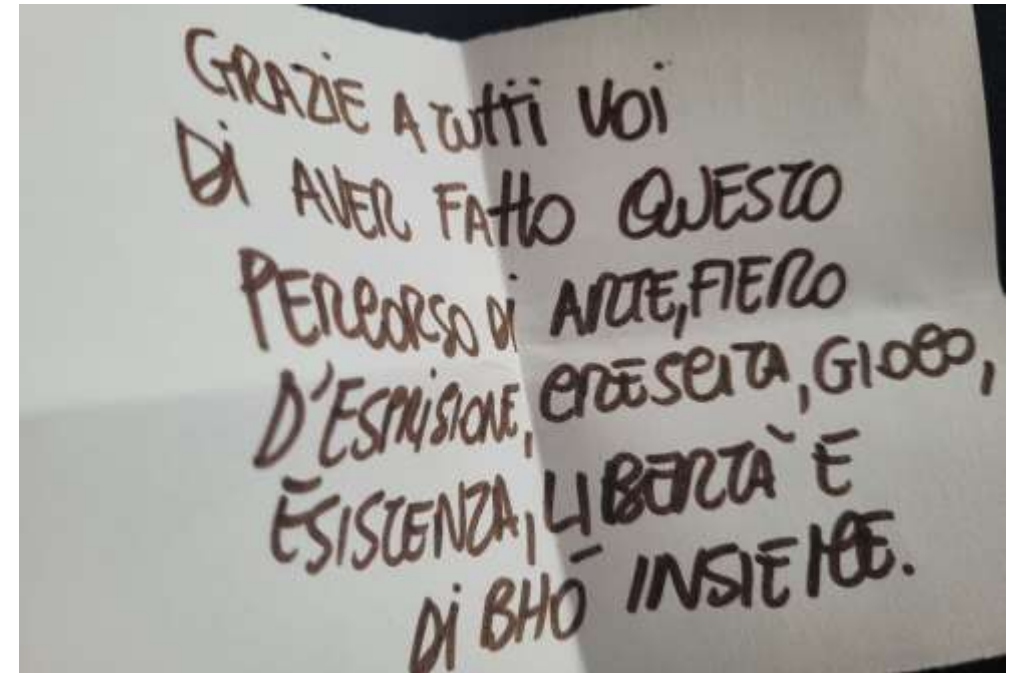 GRAZIE A tutti Voi
Di AVER FAtto QUESTO
PERCORSO Di ARTE, FIERO
D'ESPRISIONE, CRESCITA, GIOCO,
ESISTENZA, LIBERTÀ E
Di BHO INSIEME.